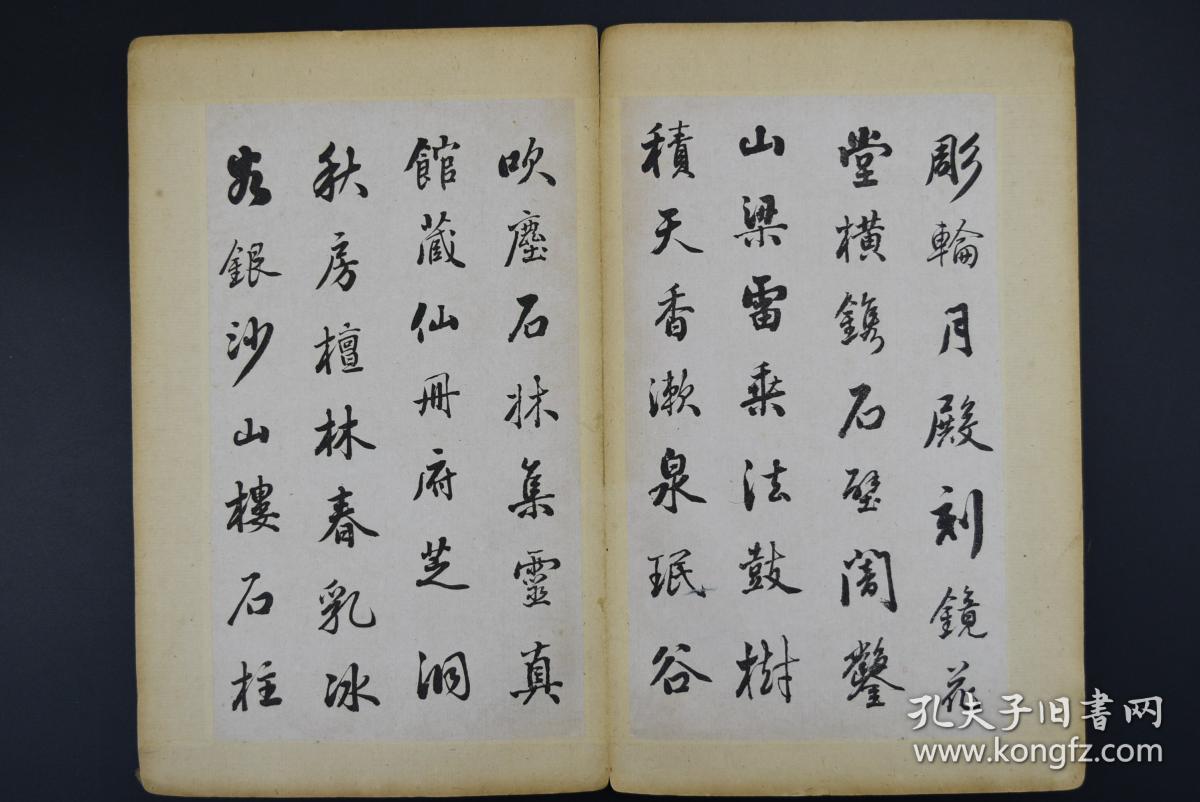 彫輪月殿刻鏡花
堂橫鐫石壁闇鑿
山梁雷乘法鼓樹
積天香漱泉珉谷
吹塵石牀集靈真
館藏仙冊府芝洞
秋房檀林春乳冰
谷銀沙山樓石柱
孔夫子旧书网
www.kongfz.com